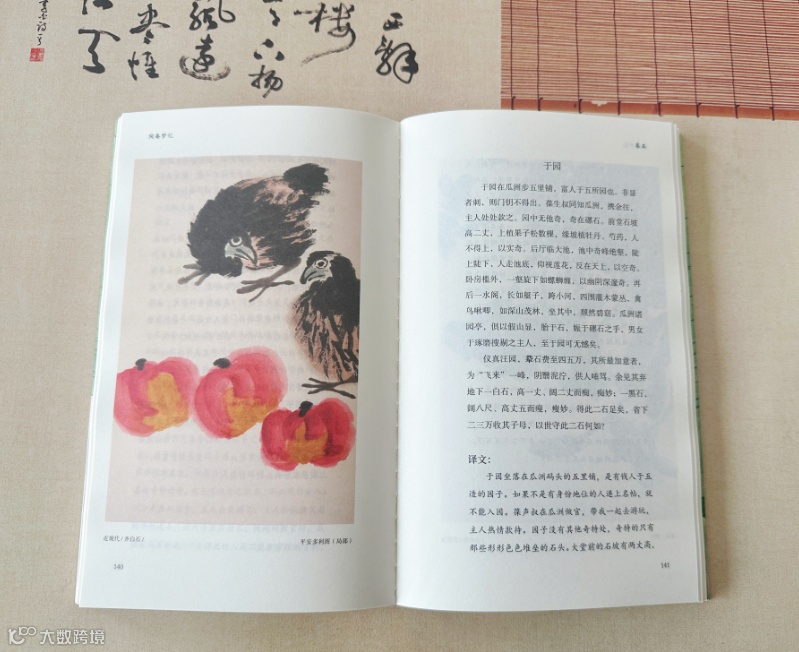 陶庵梦忆
近现代/齐白石/
平安多利图（局部）
140
卷五
于园
于园在瓜洲步五里铺，富人于五所园也。非显
者刺，则门钥不得出。葆生叔同知瓜洲，携余往，
主人处处款之。园中无他奇，奇在磥石。前堂石坡
高二丈，上植果子松数棵，缘坡植牡丹、芍药，人
不得上，以实奇。后厅临大池，池中奇峰绝壑，陡
上陡下，人走池底，仰视莲花，反在天上，以空奇。
卧房槛外，一壑旋下如螺蛳缠，以幽阴深邃奇。再
后一水阁，长如艇子，跨小河，四围灌木蒙丛，禽
鸟啾唧，如深山茂林，坐其中，颓然碧窈。瓜洲诸
园亭，俱以假山显，胎于石，娠于磥石之手，男女
于琢磨搜剔之主人，至于园可无憾矣。
仪真汪园，輂石费至四五万，其所最加意者，
为“飞来”一峰，阴翳泥泞，供人唾骂。余见其弃
地下一白石，高一丈、阔二丈而痴，痴妙；一黑石，
阔八尺、高丈五而瘦，瘦妙。得此二石足矣，省下
二三万收其子母，以世守此二石何如？
译文：
于园坐落在瓜洲码头的五里铺，是有钱人于五
造的园子。如果不是有身份地位的人递上名帖，就
不能入园。葆声叔在瓜洲做官，带我一起去游玩，
主人热情款待。园子没有其他奇特处，奇特的只有
那些形形色色堆垒的石头。大堂前的石坡有两丈高，
141
大数跨境